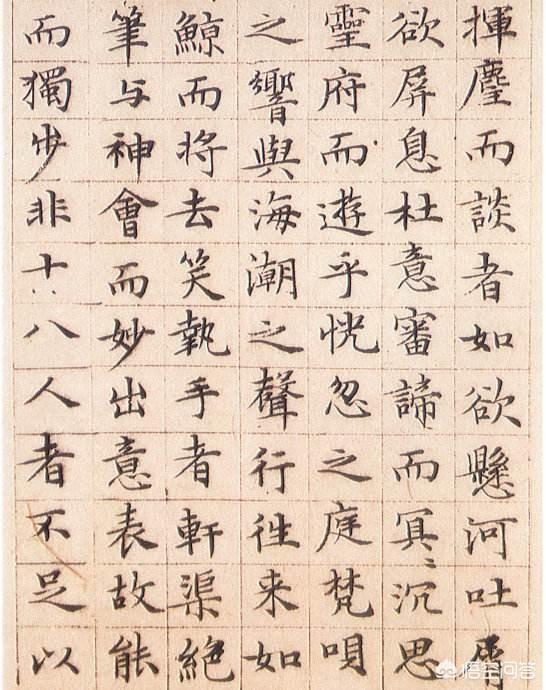 揮麈而談者如欲懸河吐屑
欲屏息杜意審諦而冥〻沉思
靈府而遊乎恍忽之庭梵唄
之響與海潮之聲行往来如
鯨而將去笑執手者軒渠絕
筆与神會而妙出意表故能
而獨步非十八人者不足以
悟空问答